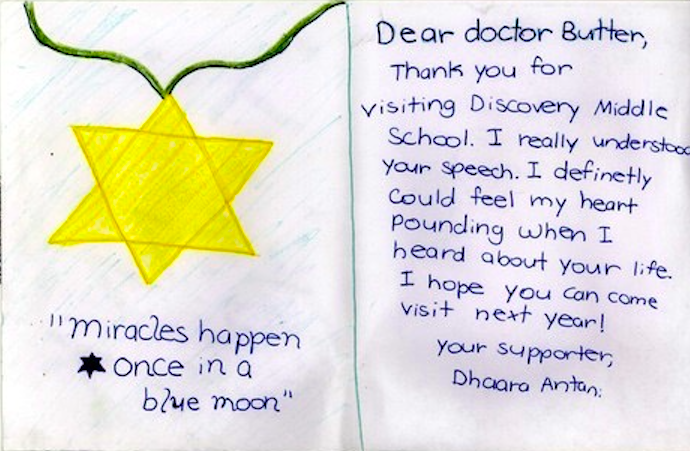 "miracles happen
once in a
blue moon"
Dear doctor Butter,
Thank you for
visiting Discovery Middle
School. I really understood
your speech. I definetly
could feel my heart
pounding when I
heard about your life.
I hope you can come
visit next year!
your supporter,
Dhaara Antani